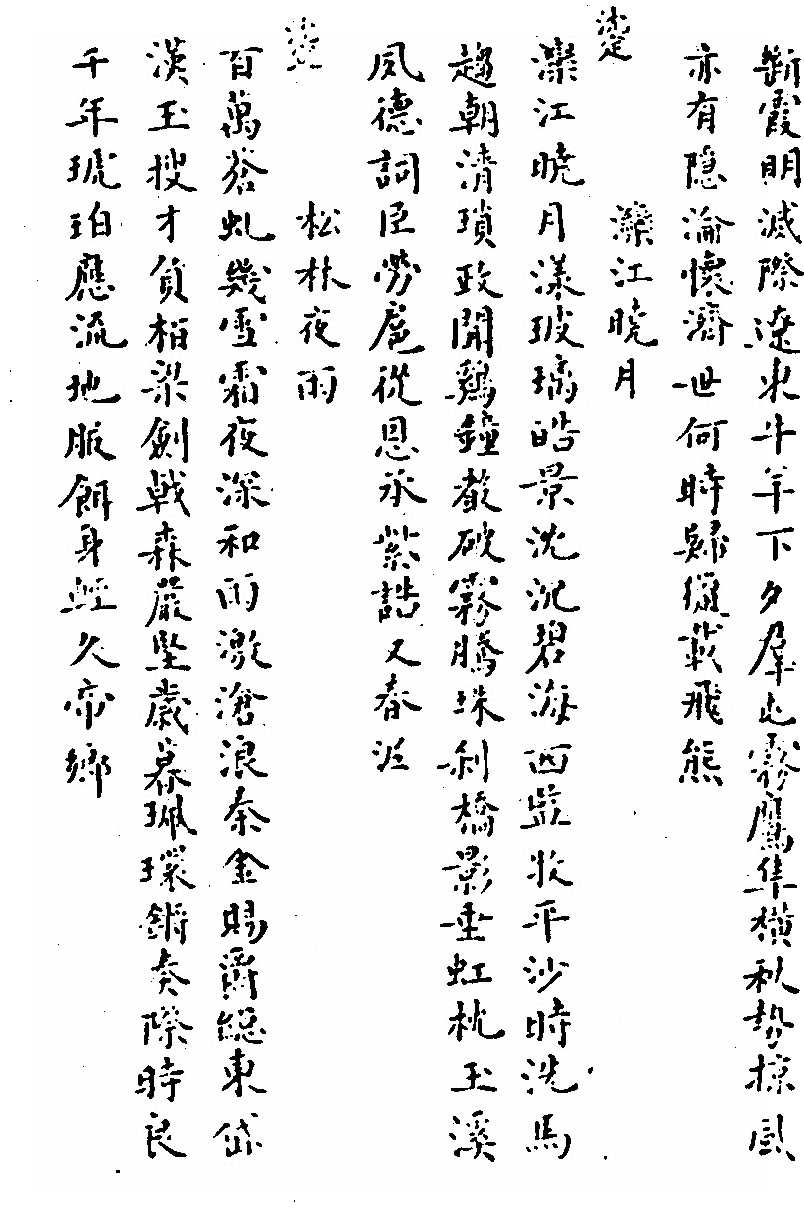 斷霞明滅際遼東斗羊下夕羣屯霧鷹隼橫秋勢掠風
亦有隱淪懷濟世何時歸獵載飛熊
灤江曉月
灤江曉月漾玻璃皓景沈沉碧海西監牧平沙時洗馬
趨朝清瑣政聞鷄鐘歇破霧騰珠刹橋影垂虹枕玉溪
夙德詞臣勞扈從恩承紫誥又春泥
松林夜雨
百萬蒼虬幾雪霜夜深和雨激滄浪秦金賜爵縂東岱
漢玉搜才負栢梁劍戟森嚴堅歲暮珮環鏘奏際時良
千年琥珀應流地服餌身輕久帝鄉